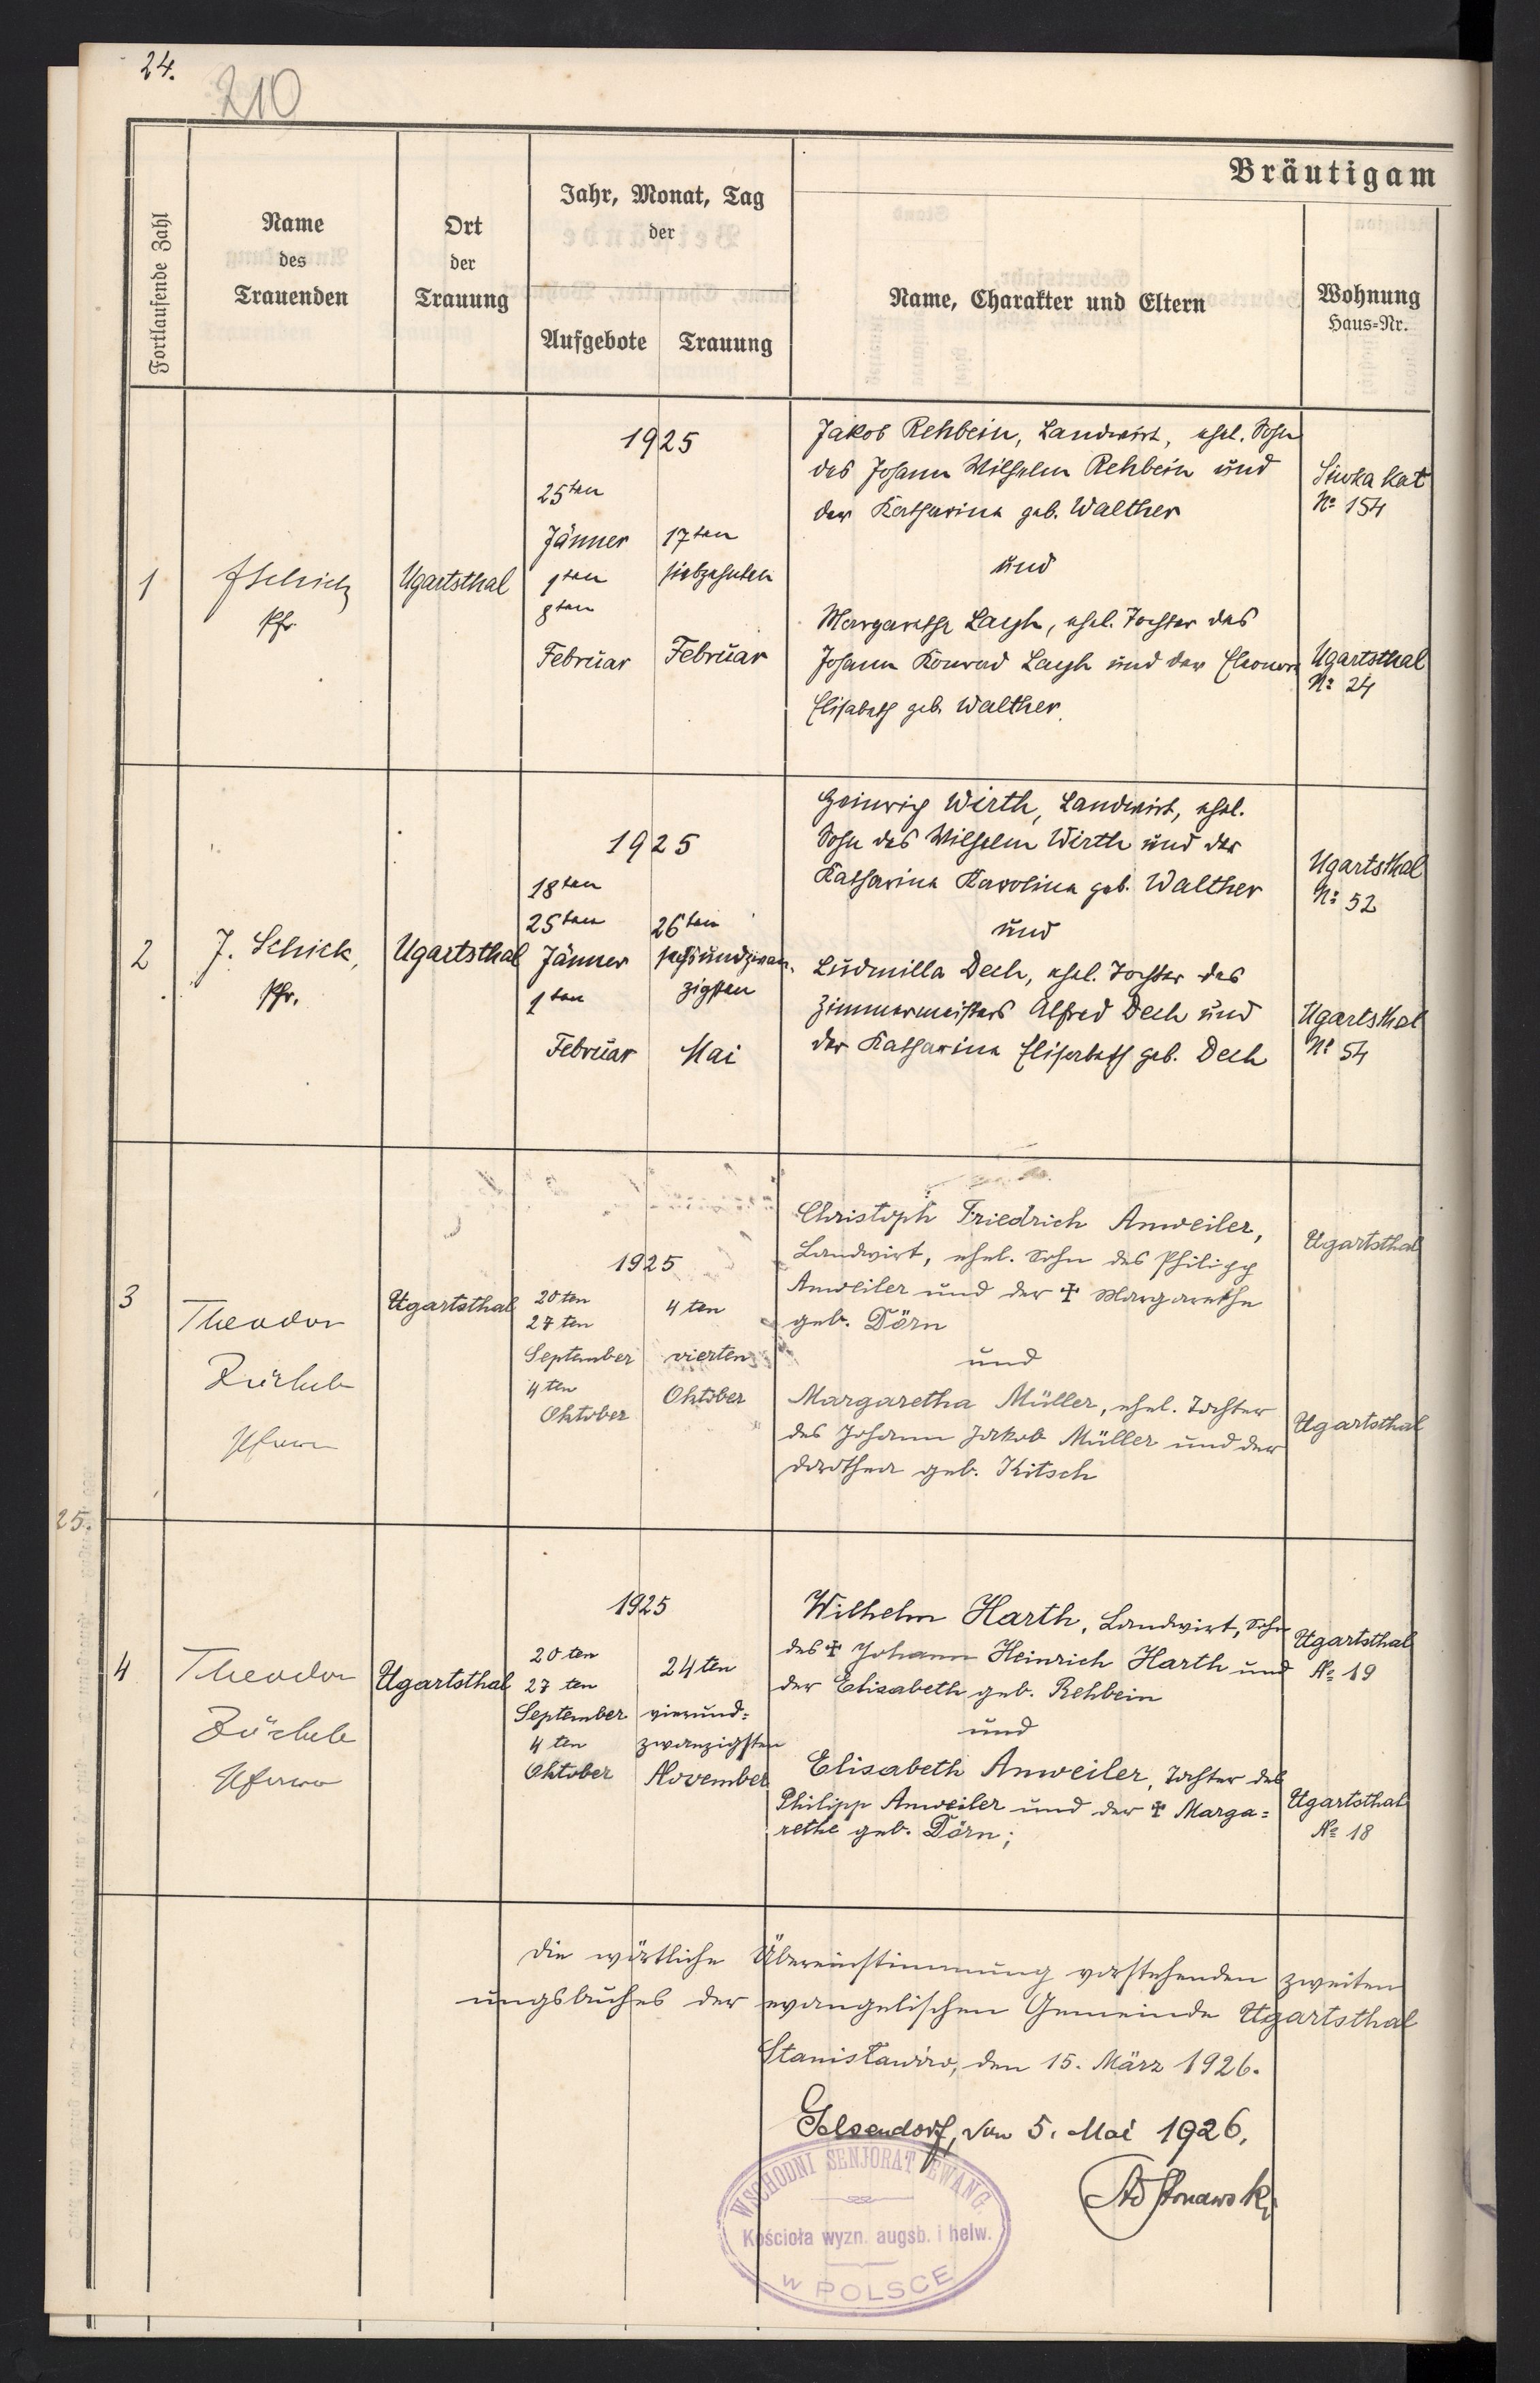 24.
210
Bräutigam
Fortlaufende Zahl
Name
des
Trauenden
Ort
der
Trauung
Jahr, Monat, Tag
der
Aufgebote
Trauung
Name, Charakter und Eltern
Wohnung
Haus=Nr.
1
JSchick
Pfr.
Ugartsthal
1925
25ten
Jänner
1ten
8ten
Februar
17ten
siebzehnten
Februar
Jakob Rehbein, Landwirt, ehel. Sohn
des Johann Wilhelm Rehbein und
der Katharina geb. Walther
und
Margarethe Laugh, ehel. Tochter des
Johann Konrad Laugh und der Eleonora
Elisabeth geb. Walther.
Siwka kat
No 154
Ugartsthal
No 24
2
J. Schick,
Pfr.
Ugartsthal
1925
18ten
25ten
Jänner
1ten
Februar
26ten
sechsundzwan-
zigsten
Mai
Heinrich Wirth, Landwirt, ehel.
Sohn des Wilhelm Wirth und der
Katharina Karolina geb. Walther
und
Ludmilla Dech, ehel. Tochter des
Zimmermeisters Alfred Dech und
der Katharina Elisabeth geb. Dech
Ugartsthal
No 52
Ugartsthal
No 54
3
Theodor
Zöckler
Pfarrer
Ugartsthal
1925
20ten
27ten
September
4ten
Oktober
4ten
vierten
Oktober
Christoph Friedrich Anweiler,
Landwirt, ehel. Sohn des Philipp
Anweiler und der ✝ Margarethe
geb. Dörn
und
Margaretha Müller, ehel. Tochter
des Johann Jakob Müller und der
Dorothea geb. Kitsch
Ugartsthal
Ugartsthal
25.
4
Theodor
Zöckler
Pfarrer
Ugartsthal
1925
20ten
27ten
September
4ten
Oktober
24ten
vierund=
zwanzigsten
November
Wilhelm Harth, Landwirt, Sohn
des ✝ Johann Heinrich Harth und
der Elisabeth geb. Rehbein
und
Elisabeth Anweiler, Tochter des
Philipp Anweiler und der ✝ Marga=
rethe geb. Dörn;
Ugartsthal
No 19
Ugartsthal
No 18
Die wörtliche Übereinstimmung vorstehenden zweiten
ungsbuches der evangelischen Gemeinde Ugartsthal
Stanisławów, den 15. März 1926.
Gelsendorf, den 5. Mai 1926.
WSCHODNI SENJORAT EWANG.
Kościoła wyzn. augsb. i helw.
w POLSCE